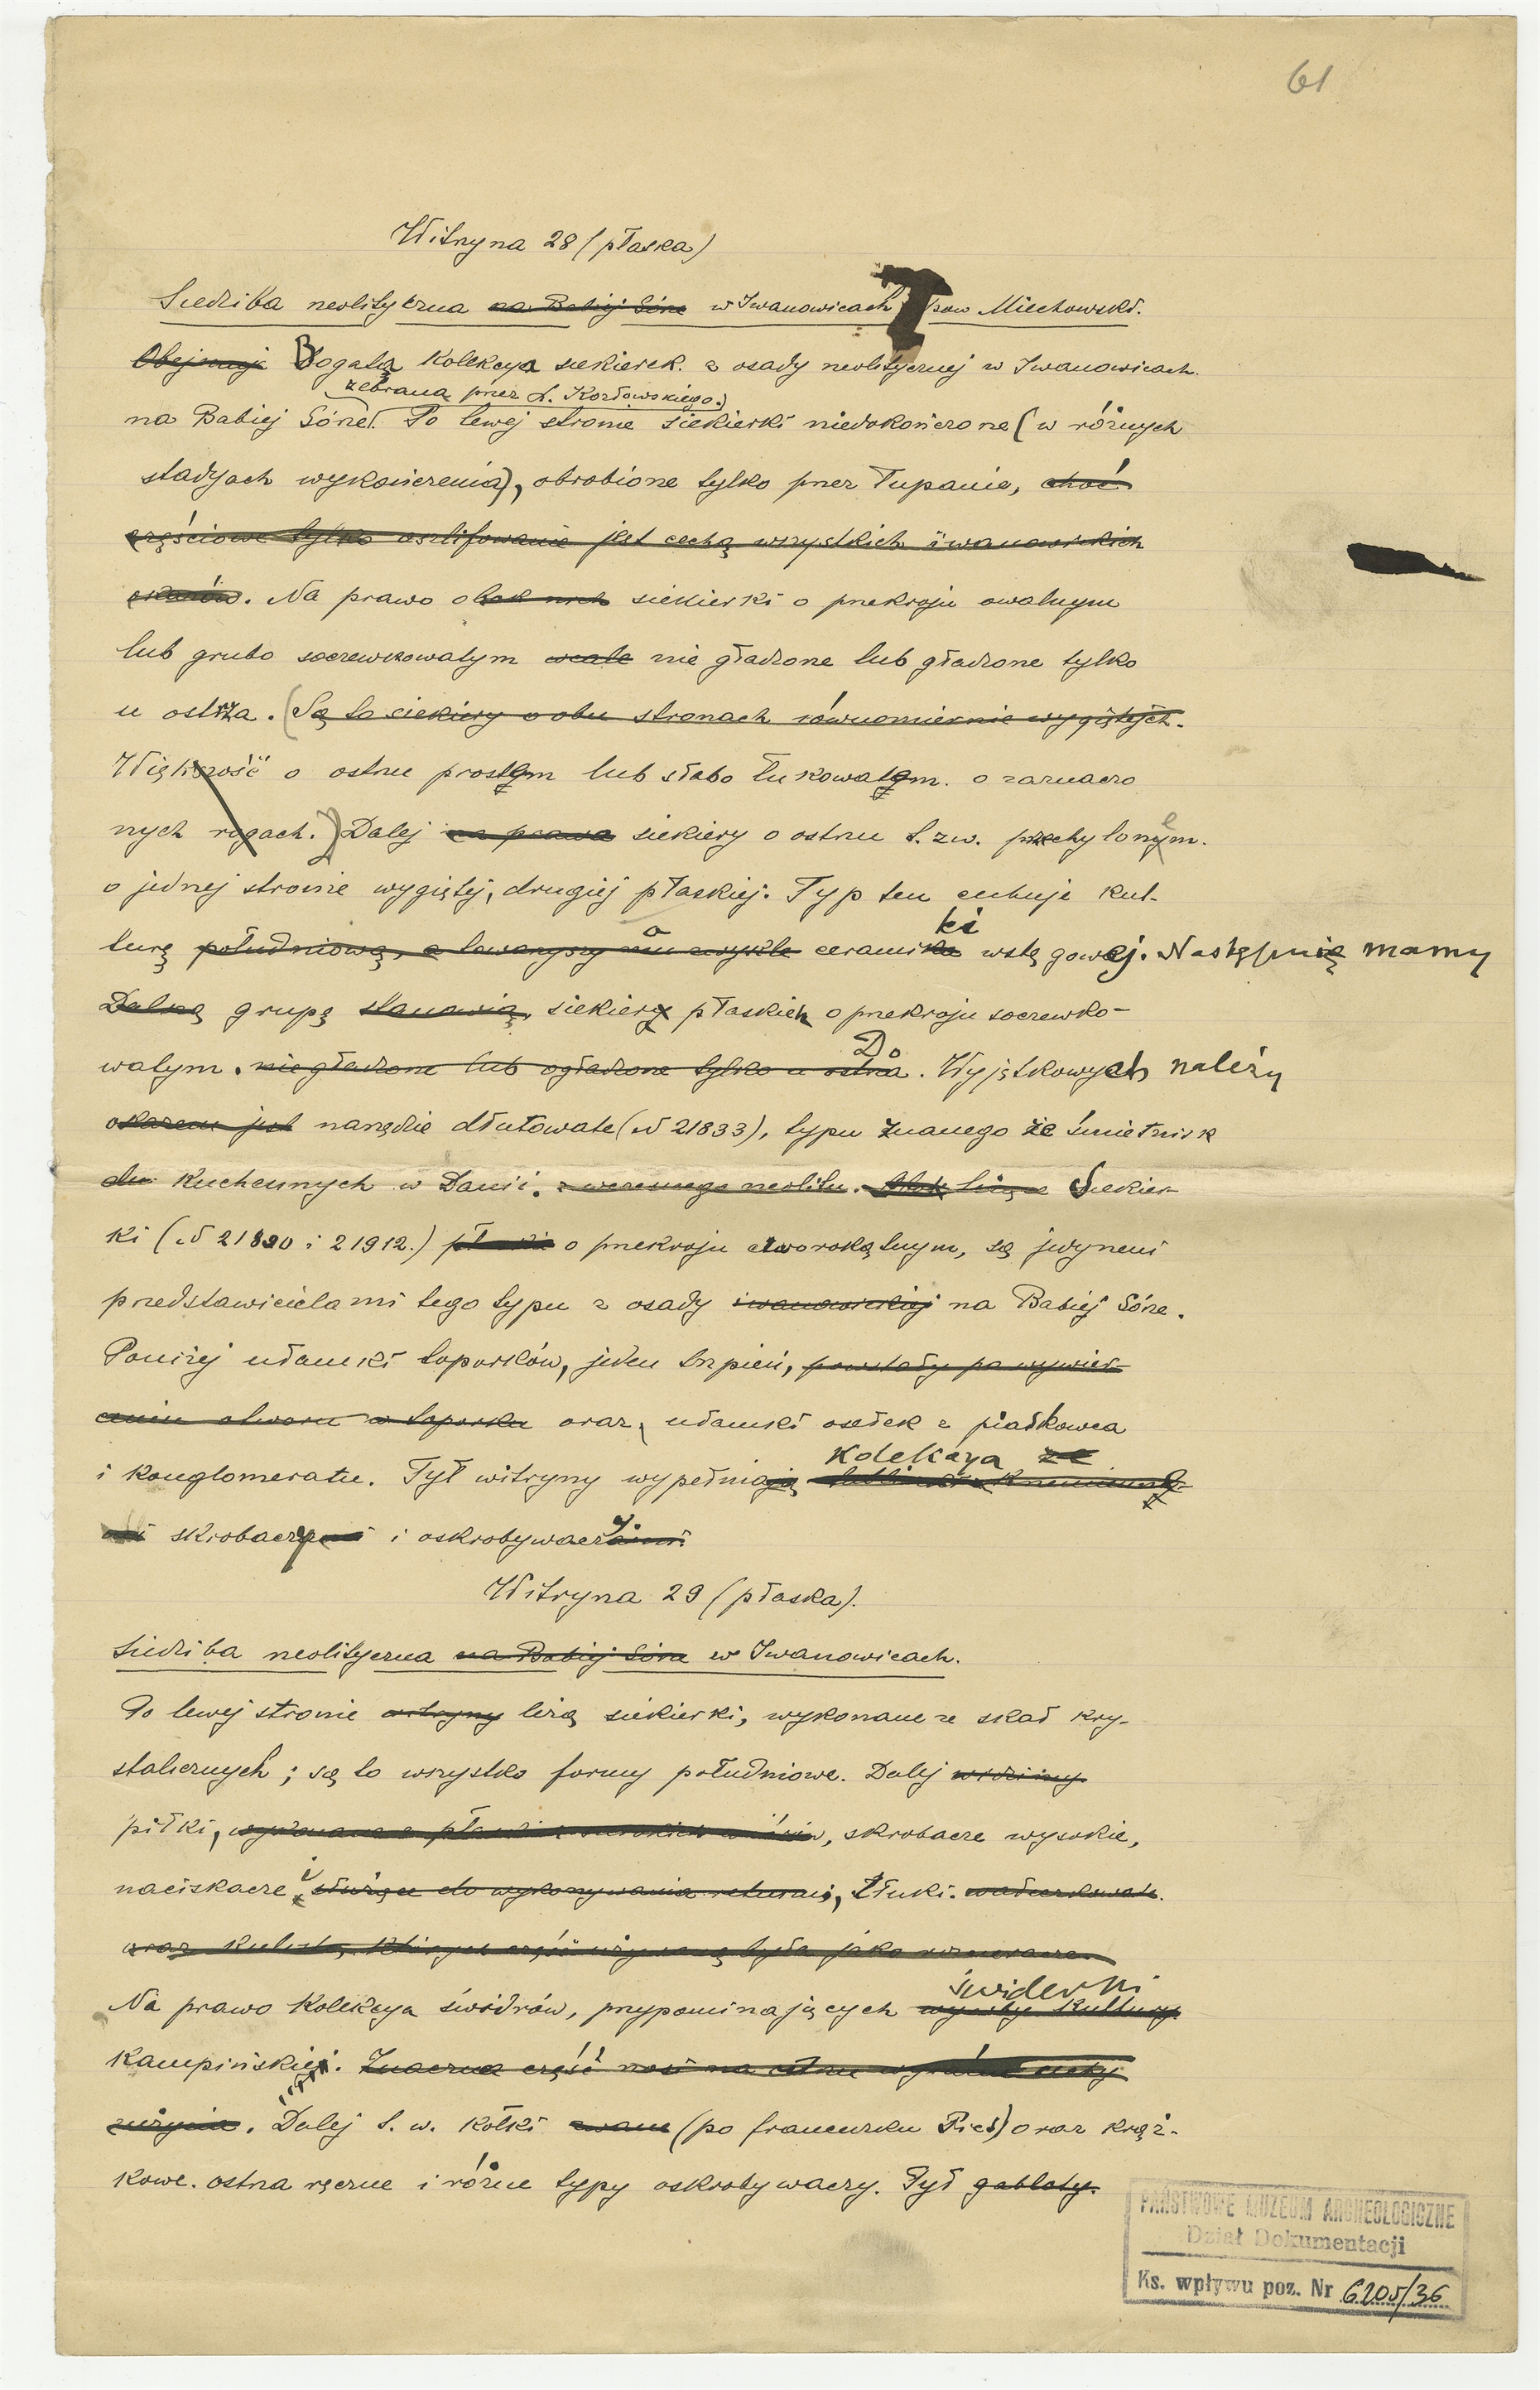 61
Witryna 28 (płaska)
Siedziba neolityczna na Babiej Górze w Iwanowicach pow Miechowski.
Obejmuje Bogata Kolekcya siekierek. z osady neolitycznej w Iwanowicach
zebrana przez L. Kozłowskiego.)
na Babiej Górze. Po lewej stronie siekierki niedokończone (w różnych
stadyach wykończenia), obrobione tylko przez łupanie, choć
częściowe tylko oszlifowanie jest cechą wszystkich iwanowickich
okazów. Na prawo obok nich siekierki o przekroju owalnym
lub grubo soczewkowatym wcale nie gładzone lub gładzone tylko
u ostrza. (Są to siekiery o obu stronach równomiernie wygiętych.
Większość o ostrzu prostem lub słabo łukowatem. o zaznaczo
nych rogach.) Dalej na prawo siekiery o ostrzu t. zw. przechylonem.
o jednej stronie wygiętej, drugiej płaskiej. Typ ten cechuje kul-
ki
turę południową, a towarzyszy mu zwykle ceramika wstęgowej. Następnie mamy
Dalszą grupę stanowią, siekiery płaskich o przekroju soczewko-
Do
watym. niegładzone lub ogładzone tylko u ostrza. Wyjątkowych należy
okazem jest narzędzie dłutowate (N 21833), typu znanego ze śmietnisk
kuchennych w Danii. z wczesnego neolitu. Siekier-
ki (N 21890 i 21912.) płaskie o przekroju czworokątnym, są jedynemi
przedstawicielami tego typu z osady iwanowickiej na Babiej Górze.
Poniżej ułamki toporków, jeden trzpień, powstały po wywier-
ceniu otworu w toporku oraz ułamki osełek z piaskowca
kolekcya ze
i konglomeratu. Tył witryny wypełniają
skrobaczy i oskrobywaczy
Witryna 29 (płaska).
Siedziba neolityczna na Babiej Górze w Iwanowicach.
Po lewej stronie witryny leżą siekierki, wykonane ze skał kry-
stalicznych; są to wszystko formy południowe. Dalej widzimy
piłki, wykonane z płaskich szerokich wiórów, skrobacze wysokie,
naciskacze i służące do wykonywania retuszu, tłuki.
oraz kuliste, których część używaną była jako rozcieracze.
świderki
Na prawo Kolekcya świdrów, przypominających wyroby kultury
Kampińskiej. Znaczna część nosi na ostrzu wyraźne cechy
zużycia. Dalej t. w. kolki zwane (po francusku Pics) oraz krąż-
kowe. ostrza ręczne i różne typy oskrobywaczy. Tył gabloty.
PAŃSTWOWE MUZEUM ARCHEOLOGICZNE
Dział Dokumentacji
Ks. wpływu poz. Nr 6205/36